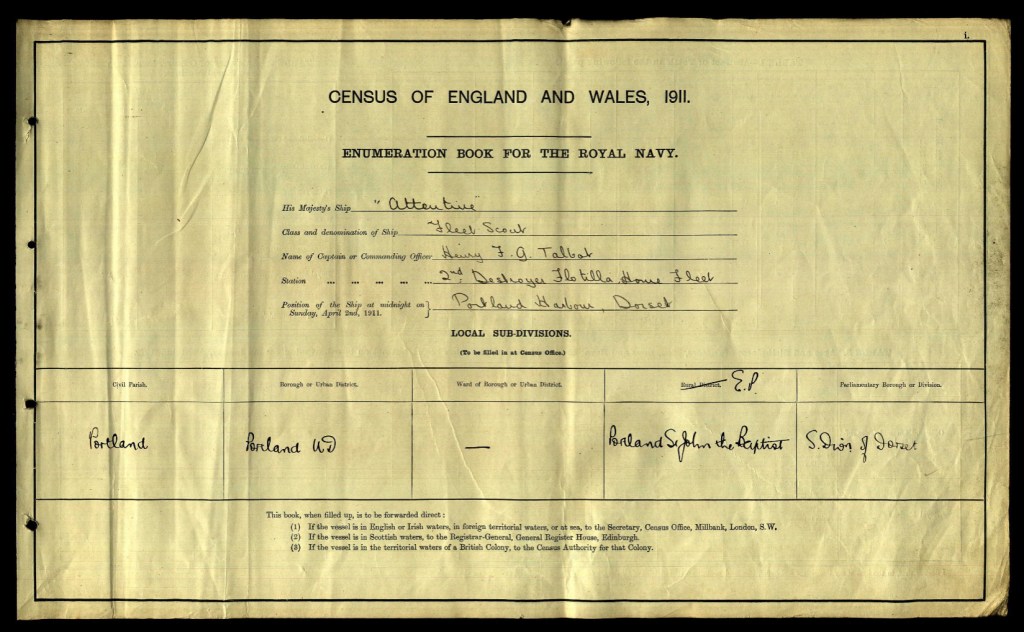 i.
CENSUS OF ENGLAND AND WALES, 1911.
ENUMERATION BOOK FOR THE ROYAL NAVY.
His Majesty's Ship "Attentive"
Class and denomination of Ship Fleet Scout
Name of Captain or Commanding Officer Henry F. G. Talbot
Station ... ... ... ... ... 2nd Destroyer Flotilla Home Fleet
Position of the Ship at midnight on Sunday, April 2nd, 1911. } Portland Harbour, Dorset
LOCAL SUB-DIVISIONS.
(To be filled in at Census Office.)
Civil Parish. Borough or Urban District. Ward of Borough or Urban District. Rural District. E.P. Parliamentary Borough or Division.
Portland Portland UD — Portland St John the Baptist S. Divn. of Dorset
This book, when filled up, is to be forwarded direct :
(1) If the vessel is in English or Irish waters, in foreign territorial waters, or at sea, to the Secretary, Census Office, Millbank, London, S.W.
(2) If the vessel is in Scottish waters, to the Registrar-General, General Register House, Edinburgh.
(3) If the vessel is in the territorial waters of a British Colony, to the Census Authority for that Colony.